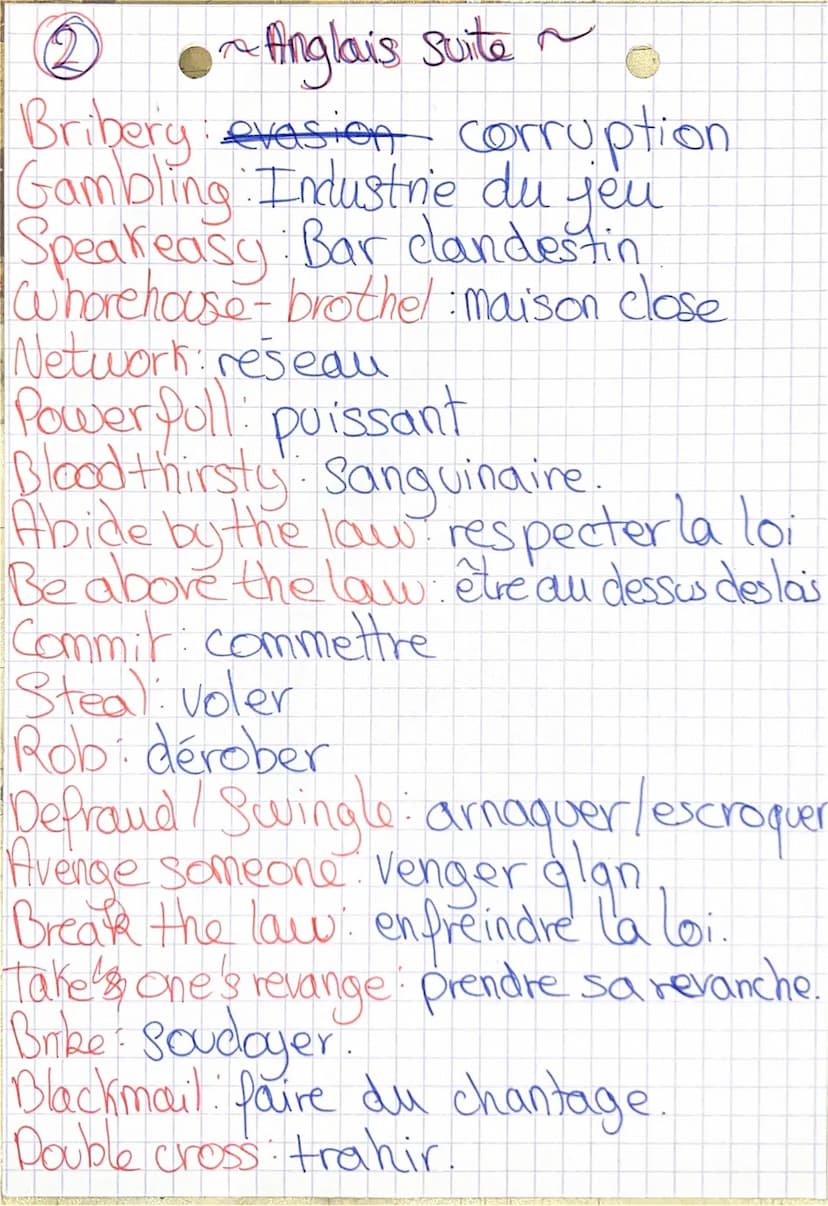 2 ~ Anglais suite ~
Bribery : evasion corruption
Gambling : Industrie du jeu
Speakeasy : Bar clandestin
Whorehouse - brothel : maison close
Network : réseau
Powerfull : puissant
Bloodthirsty : Sanguinaire.
Abide by the law : respecter la loi
Be above the law : être au dessus des lois
Commit : commettre
Steal : voler
Rob : dérober
Defraud / Swingle : arnaquer / escroquer
Avenge someone : venger qlqn
Break the law : enfreindre la loi.
Take one's revange : prendre sa revanche.
Bribe : soudoyer.
Blackmail : faire du chantage.
Double cross : trahir.